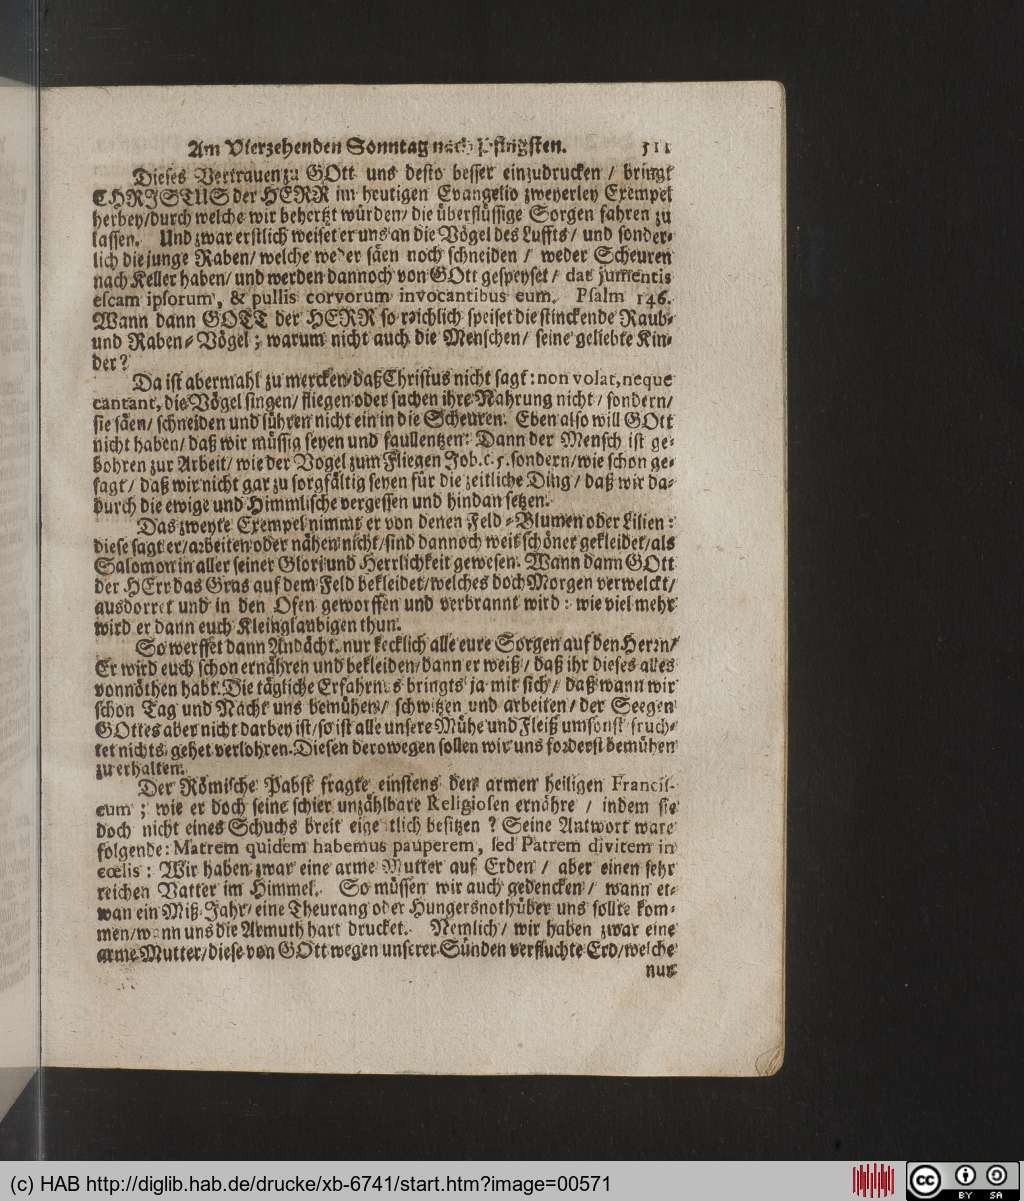 Am Vierzehenden Sonntag nach Pfingsten. 511
Dieses Vertrauen zu GOtt uns desto besser einzudrucken / bringt
CHRISTUS der HERR im heutigen Evangelio zweyerley Exempel
herbey/durch welche wir behertzt würden/ die überflüssige Sorgen fahren zu
lassen. Und zwar erstlich weiset er uns an die Vögel des Luffts/ und sonder-
lich die junge Raben/ welche weder säen noch schneiden / weder Scheuren
nach Keller haben/ und werden dannoch von GOtt gespeyset/ dat jumentis
escam ipsorum, & pullis corvorum invocantibus eum. Psalm 146.
Wann dann GOTT der HERR so reichlich speiset die stinckende Raub-
und Raben-Vögel ; warum nicht auch die Menschen/ seine geliebte Kin-
der?
Da ist abermahl zu mercken/daß Christus nicht sagt: non volat, neque
cantant, die Vögel singen/ fliegen oder suchen ihre Nahrung nicht / sondern/
sie säen/ schneiden und führen nicht ein in die Scheuren. Eben also will GOtt
nicht haben/ daß wir müssig seyen und faullentzen: Dann der Mensch ist ge-
bohren zur Arbeit/ wie der Vogel zum Fliegen Job. c. 5. sondern/wie schon ge-
sagt/ daß wir nicht gar zu sorgfältig seyen für die zeitliche Ding/ daß wir da-
durch die ewige und Himmlische vergessen und hindan setzen.
Das zweyte Exempel nimmt er von denen Feld-Blumen oder Lilien:
diese sagt er/arbeiten oder nähen nicht/sind dannoch weit schöner gekleidet/als
Salomon in aller seiner Glori und Herrlichkeit gewesen. Wann dann GOtt
der HErr das Gras auf dem Feld bekleidet/welches doch Morgen verwelckt/
ausdorret und in den Ofen geworffen und verbrannt wird: wie viel mehr
wird er dann euch Kleinglaubigen thun.
So werffet dann Andächt. nur kecklich alle eure Sorgen auf den Herrn/
Er wird euch schon ernähren und bekleiden/dann er weiß / daß ihr dieses alles
vonnöthen habt. Die tägliche Erfahrnus bringts ja mit sich/ daß wann wir
schon Tag und Nacht uns bemühen/ schwitzen und arbeiten/ der Seegen
GOttes aber nicht darbey ist/so ist alle unsere Mühe und Fleiß umsonst fruch-
tet nichts, gehet verlohren. Diesen derowegen sollen wir uns forderst bemühen
zu erhalten.
Der Römische Pabst fragte einstens den armen heiligen Francis-
cum ; wie er doch seine schier unzählbare Religiosen ernähre / indem sie
doch nicht eines Schuchs breit eigentlich besitzen ? Seine Antwort ware
folgende: Matrem quidem habemus pauperem, sed Patrem divitem in
cœlis: Wir haben zwar eine arme Mutter auf Erden / aber einen sehr
reichen Vatter im Himmel. So müssen wir auch gedencken / wann et-
wan ein Miß-Jahr/ eine Theurang oder Hungersnoth über uns sollte kom-
men/wann uns die Armuth hart drucket. Nemlich / wir haben zwar eine
arme Mutter/diese von GOtt wegen unserer Sünden verfluchte Erd/welche
nur
(c) HAB http://diglib.hab.de/drucke/xb-6741/start.htm?image=00571
cc BY SA